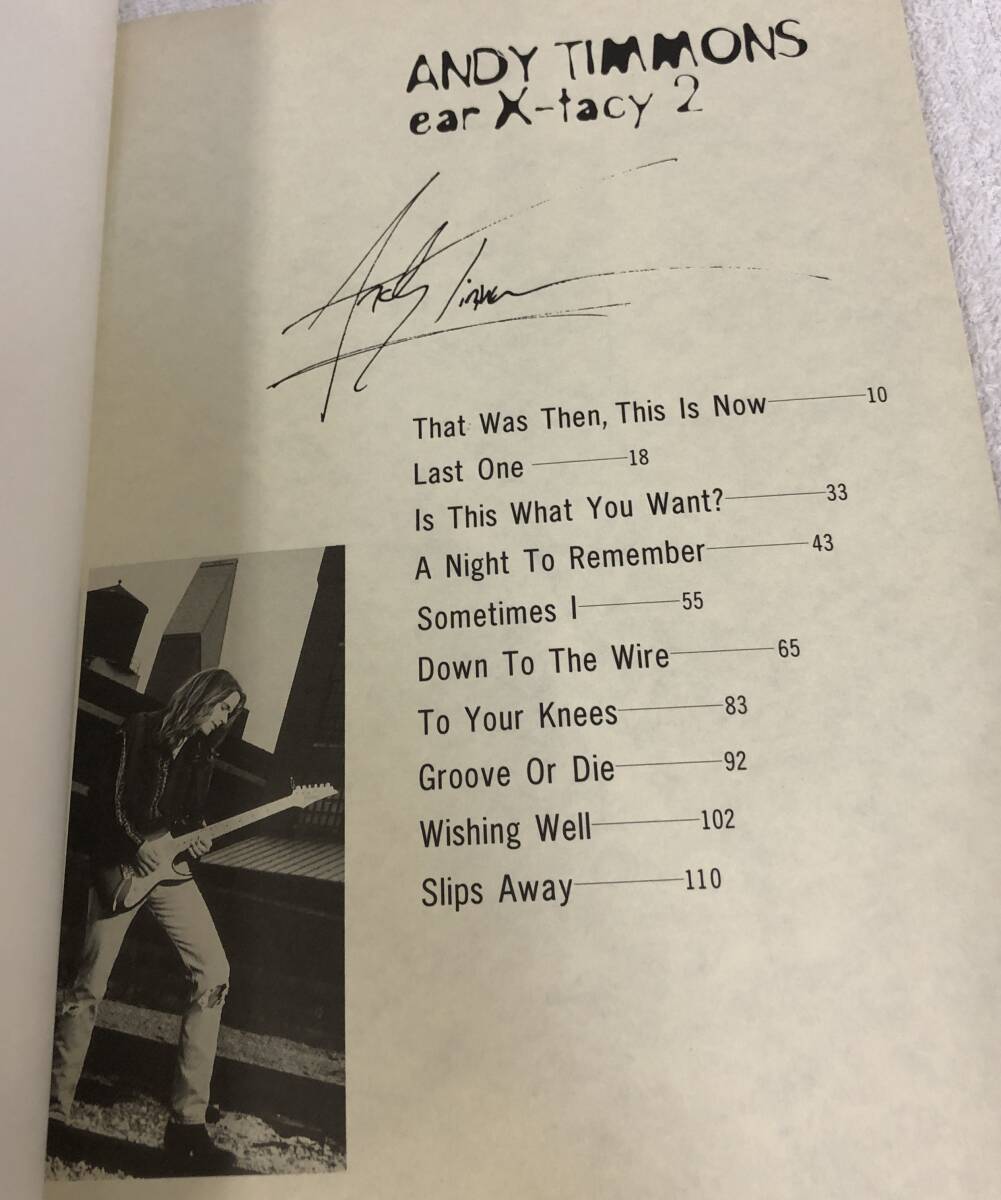 ANDY TIMMONS
ear X-tacy 2
Andy Timmons
That Was Then, This Is Now 10
Last One 18
Is This What You Want? 33
A Night To Remember 43
Sometimes I 55
Down To The Wire 65
To Your Knees 83
Groove Or Die 92
Wishing Well 102
Slips Away 110